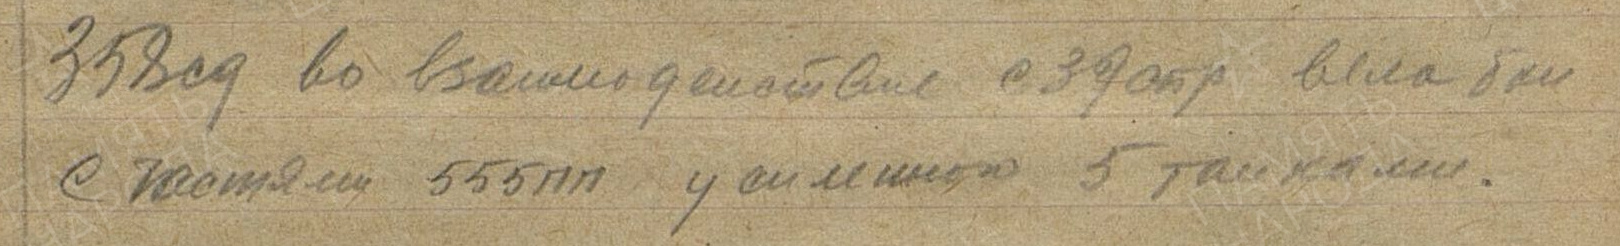 358сд во взаимодействие с 39 стр вела бои
с частями 555пп усиленного 5 танками.